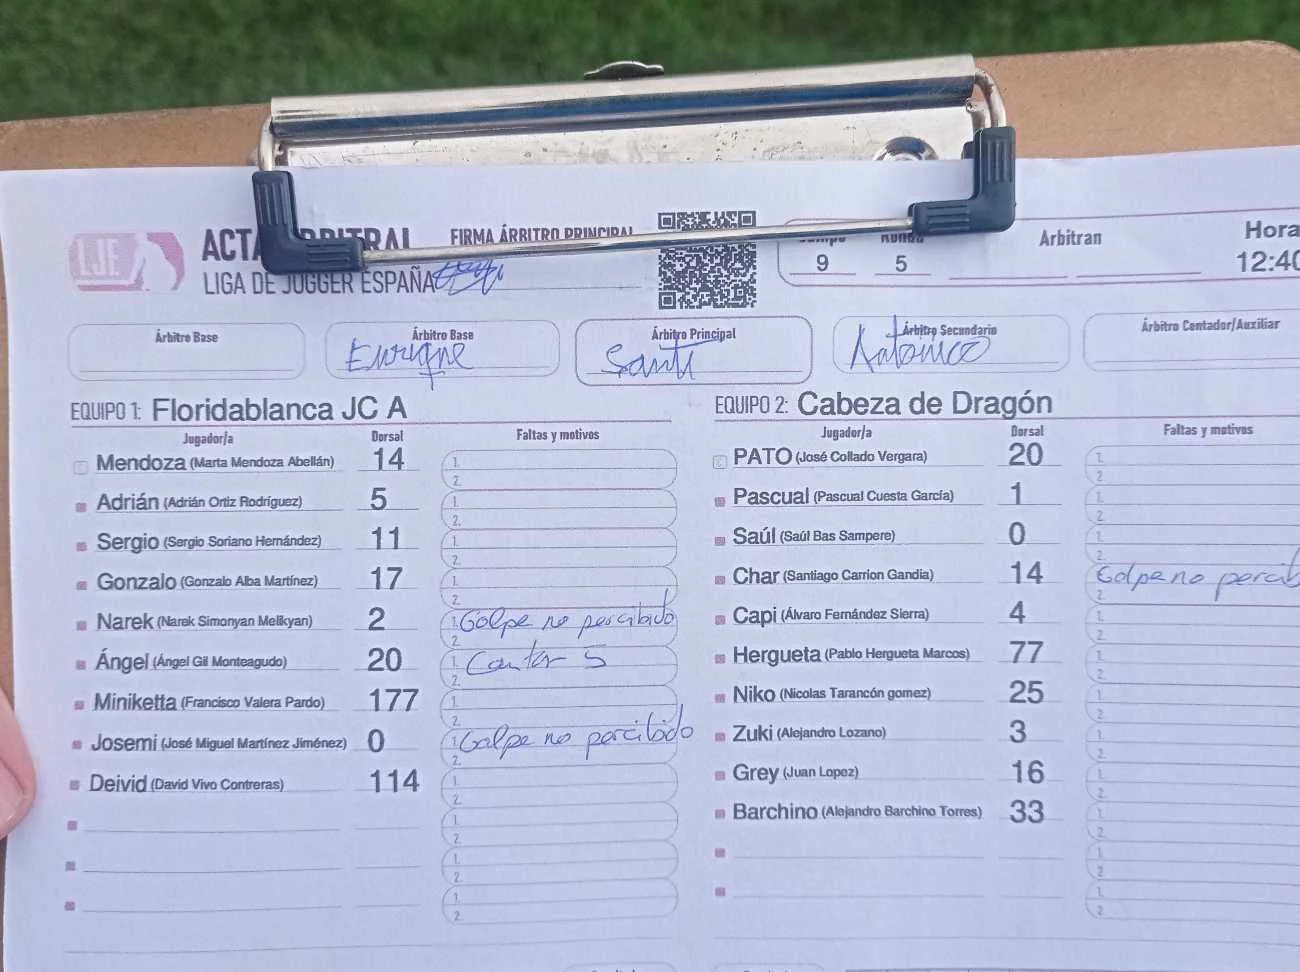 LJE
FIRMA ÁRBITRO PRINCIPAL
LIGA DE JUGGER ESPAÑA
Arbitran
Hora
9
5
12:40
Árbitro Base
Árbitro Base
Enrique
Árbitro Principal
Santi
Árbitro Secundario
Antonico
Árbitro Contador/Auxiliar
EQUIPO 1: Floridablanca JC A
Jugador/a Dorsal Faltas y motivos
Mendoza (Marta Mendoza Abellán) 14 1.
2.
Adrián (Adrián Ortiz Rodríguez) 5 1.
2.
Sergio (Sergio Soriano Hernández) 11 1.
2.
Gonzalo (Gonzalo Alba Martínez) 17 1.
2.
Narek (Narek Simonyan Melikyan) 2 1. Golpe no percibido
2.
Ángel (Ángel Gil Monteagudo) 20 1. Cantar 5
2.
Miniketta (Francisco Valera Pardo) 177 1.
2.
Josemi (José Miguel Martínez Jiménez) 0 1. Golpe no percibido
2.
Deivid (David Vivo Contreras) 114 1.
2.
1.
2.
1.
2.
1.
2.
EQUIPO 2: Cabeza de Dragón
Jugador/a Dorsal Faltas y motivos
PATO (José Collado Vergara) 20 1.
2.
Pascual (Pascual Cuesta García) 1 1.
2.
Saúl (Saúl Bas Sampere) 0 1.
2.
Char (Santiago Carrion Gandia) 14 Golpe no percib
2.
Capi (Álvaro Fernández Sierra) 4 1.
2.
Hergueta (Pablo Hergueta Marcos) 77 1.
2.
Niko (Nicolas Tarancón gomez) 25 1.
2.
Zuki (Alejandro Lozano) 3 1.
2.
Grey (Juan Lopez) 16 1.
2.
Barchino (Alejandro Barchino Torres) 33 1.
2.
1.
2.
1.
2.